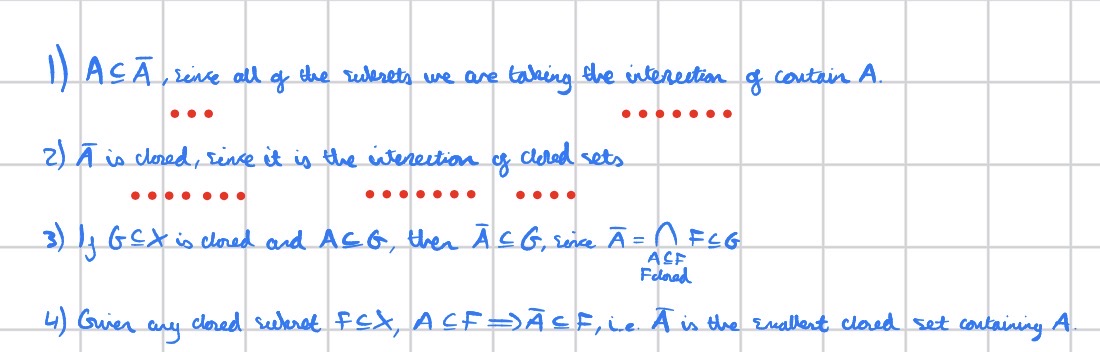 1) A ⊆ Ā, since all of the subsets we are taking the intersection of contain A.
2) Ā is closed, since it is the intersection of closed sets
3) If G ⊆ X is closed and A ⊆ G, then Ā ⊆ G, since Ā = ⋂ F ⊆ G
A ⊆ F
F closed
4) Given any closed subset F ⊆ X, A ⊆ F ⟹ Ā ⊆ F, i.e. Ā is the smallest closed set containing A.